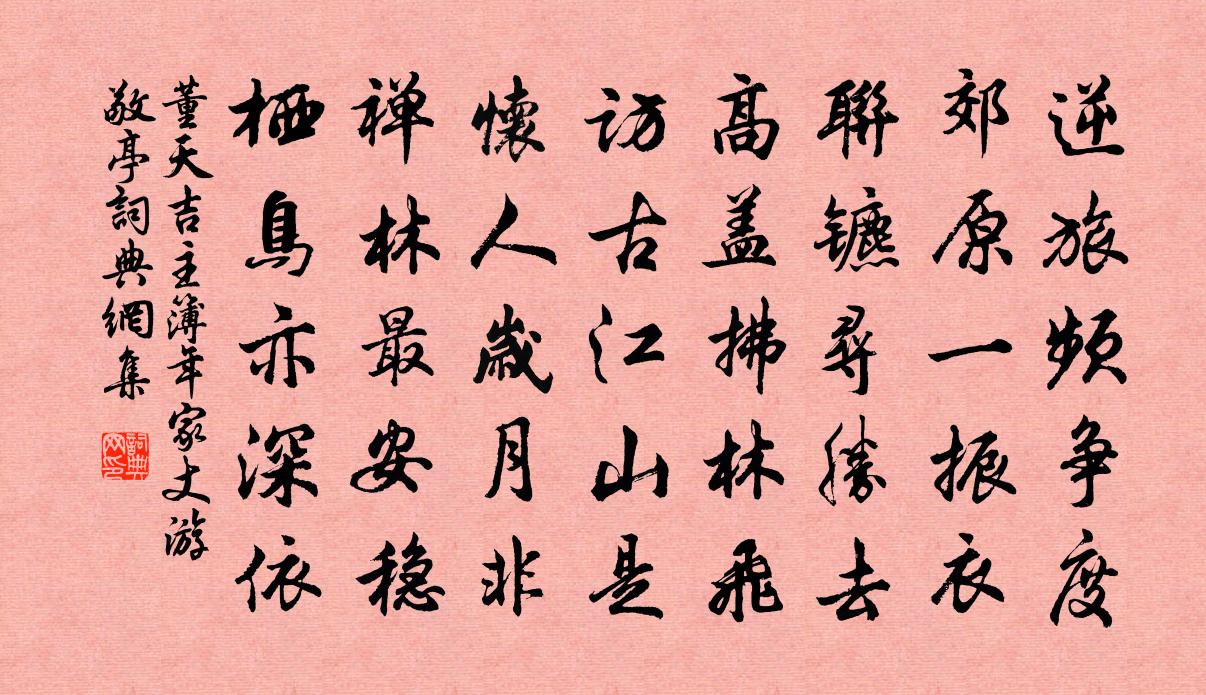 逆旅頻争度
郊原一振衣
聯镳尋勝去
高盖拂林飛
访古江山是
懷人歲月非
禅林最安稳
栖鳥亦深依
董天吉主簿年家丈游
敬亭詞典網集
詞典网印